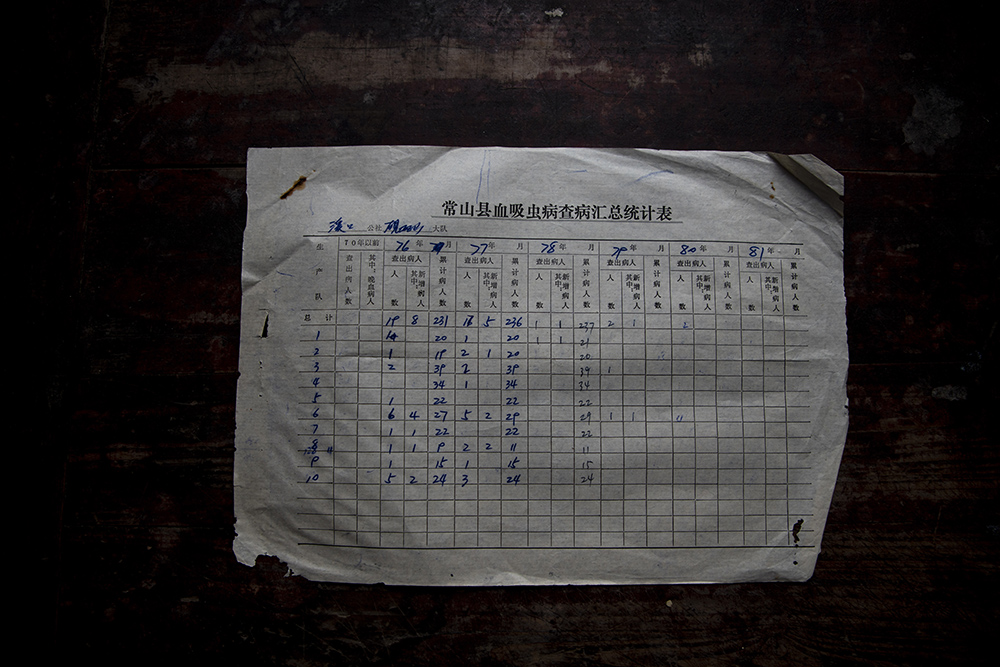 常山县血吸虫病查病汇总统计表
公社 大队
生产队 70年以前 76年 月 77年 月 78年 月 79年 月 80年 月 81年 月
查出病人数 其中:晚血病人 查出病人 累计病人数 查出病人 累计病人数 查出病人 累计病人数 查出病人 累计病人数 查出病人 累计病人数 查出病人 累计病人数
人数 其中:新增病人 人数 其中:新增病人 人数 其中:新增病人 人数 其中:新增病人 人数 其中:新增病人 人数 其中:新增病人
总计 19 8 231 16 5 236 1 1 237 2 1
1 20 1 20 1 1 21
2 1 19 2 1 20 20
3 2 39 39 39 1
4 34 1 34 34
5 1 22 22 22
6 6 4 27 5 2 29 29 1 1
7 1 1 22 22 22
8 1 1 9 2 2 11 11
9 1 15 1 15 15
10 5 2 24 3 24 24